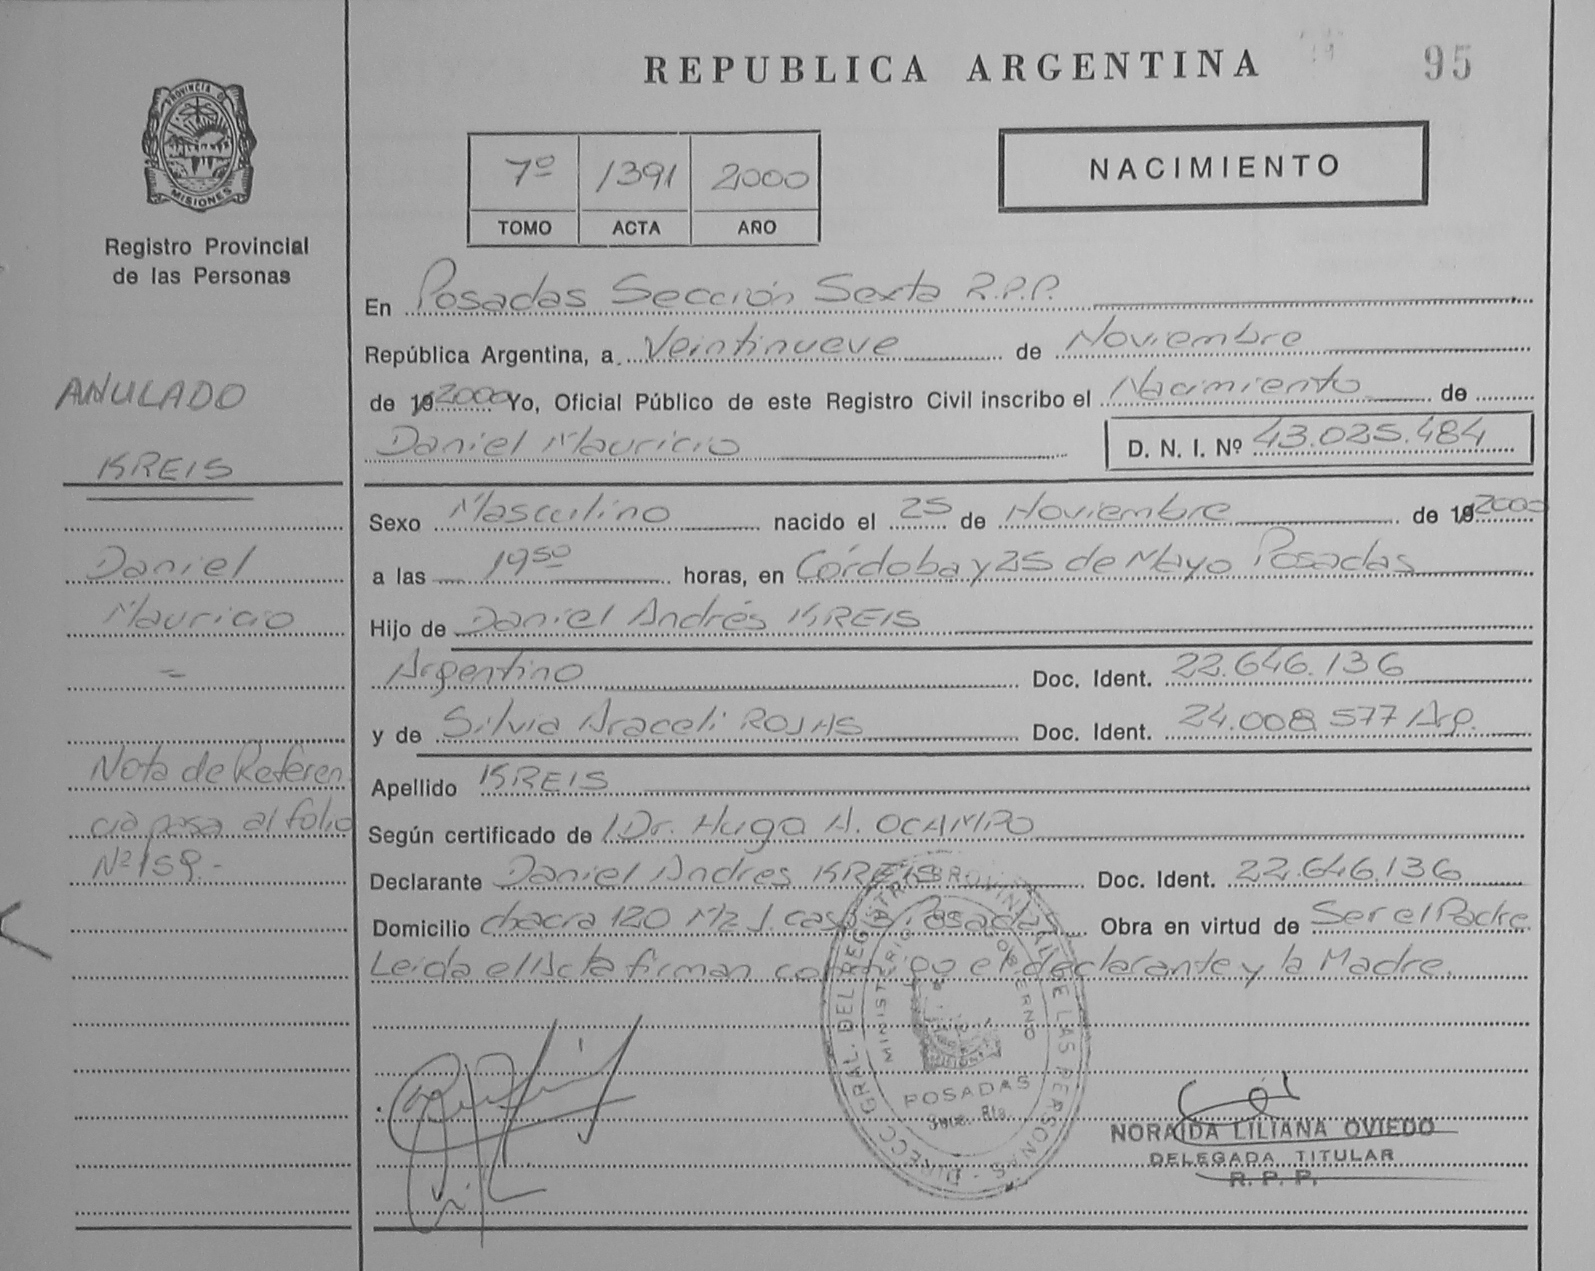 REPUBLICA ARGENTINA
95
PROVINCIA DE
MISIONES
Registro Provincial
de las Personas
7º 1391 2000
TOMO ACTA AÑO
NACIMIENTO
En Posadas Sección Sexta R.P.P.
República Argentina, a Veintinueve de Noviembre
de 19 2000 Yo, Oficial Público de este Registro Civil inscribo el Nacimiento de
Daniel Mauricio D. N. I. Nº 43.025.484
Sexo Masculino nacido el 25 de Noviembre de 19 2000
a las 19 50 horas, en Córdoba y 25 de Mayo Posadas
Hijo de Daniel Andrés KREIS
Argentino Doc. Ident. 22.646.136
y de Silvia Araceli ROJAS Doc. Ident. 24.008.577 Arg.
Apellido KREIS
Según certificado de Dr. Hugo A. OCAMPO
Declarante Daniel Andres KREIS Doc. Ident. 22.646.136
Domicilio chacra 120 Mz J casa Posadas Obra en virtud de Ser el Padre
Leida el Acta firman conmigo el declarante y la Madre.
ANULADO
KREIS
Daniel
Mauricio
Nota de Referen
cia pasa al folio
Nº 159.-
DIRECC GRAL. DEL REGISTRO PROVINCIAL DE LAS PERSONAS
MINISTERIO GOBIERNO
POSADAS
NORAIDA LILIANA OVIEDO
DELEGADA TITULAR
R. P. P.